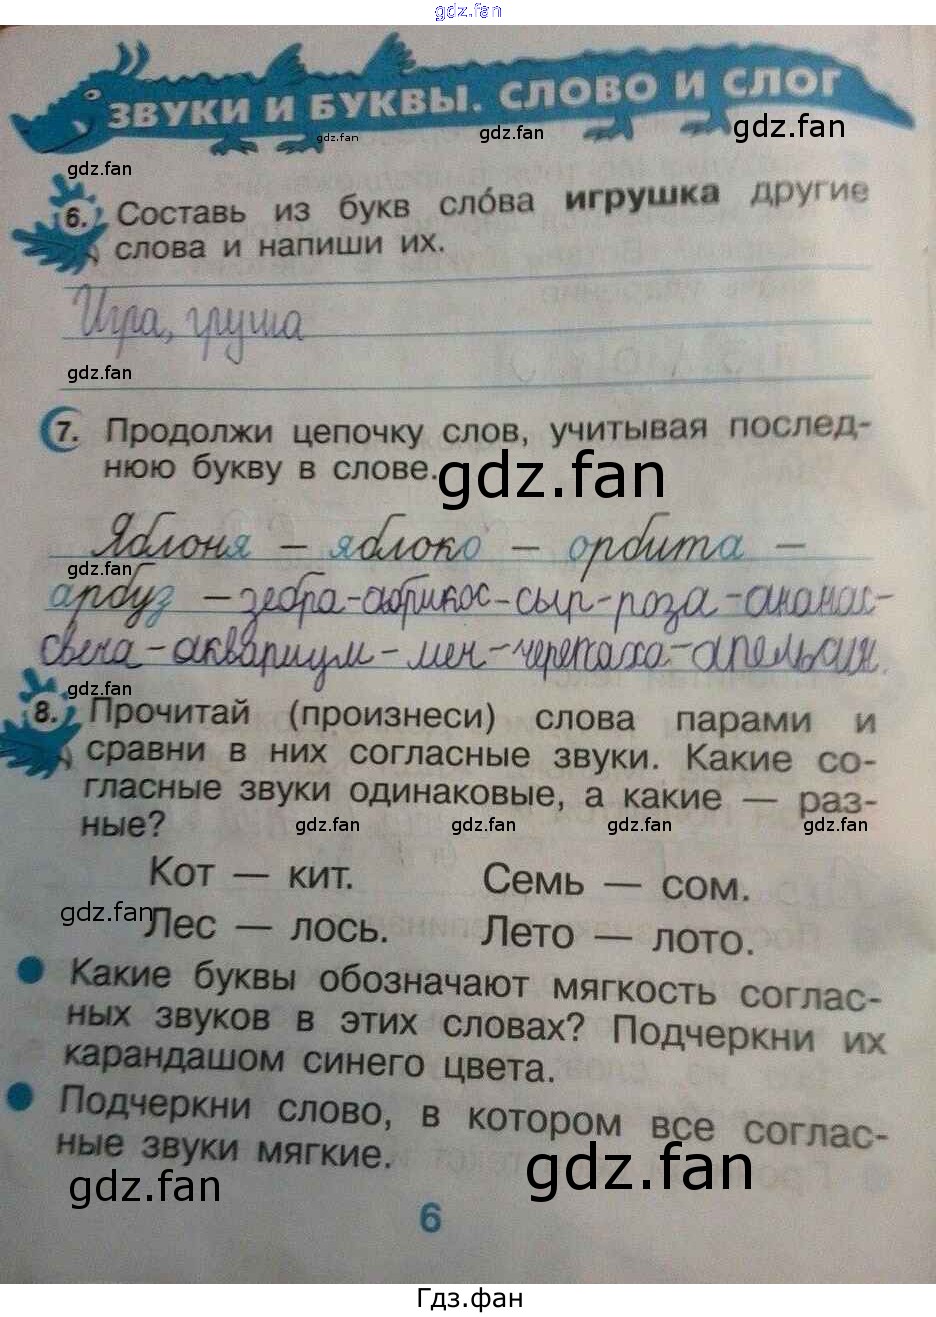 gdz.fan
ЗВУКИ И БУКВЫ. СЛОВО И СЛОГ
gdz.fan
gdz.fan
gdz.fan
gdz.fan
6. Составь из букв сло́ва игрушка другие
слова и напиши их.
Игра, груша
gdz.fan
7. Продолжи цепочку слов, учитывая послед-
нюю букву в слове.
gdz.fan
Яблоня – яблоко – орбита –
gdz.fan
арбуз – зебра-абрикос-сыр-роза-ананас-
свеча-аквариум-меч-черепаха-апельсин.
gdz.fan
8. Прочитай (произнеси) слова парами и
сравни в них согласные звуки. Какие со-
гласные звуки одинаковые, а какие — раз-
ные?
gdz.fan gdz.fan gdz.fan gdz.fan
Кот — кит. Семь — сом.
gdz.fan
Лес — лось. Лето — лото.
Какие буквы обозначают мягкость соглас-
ных звуков в этих словах? Подчеркни их
карандашом синего цвета.
Подчеркни слово, в котором все соглас-
ные звуки мягкие.
gdz.fan
gdz.fan
6
Гдз.фан